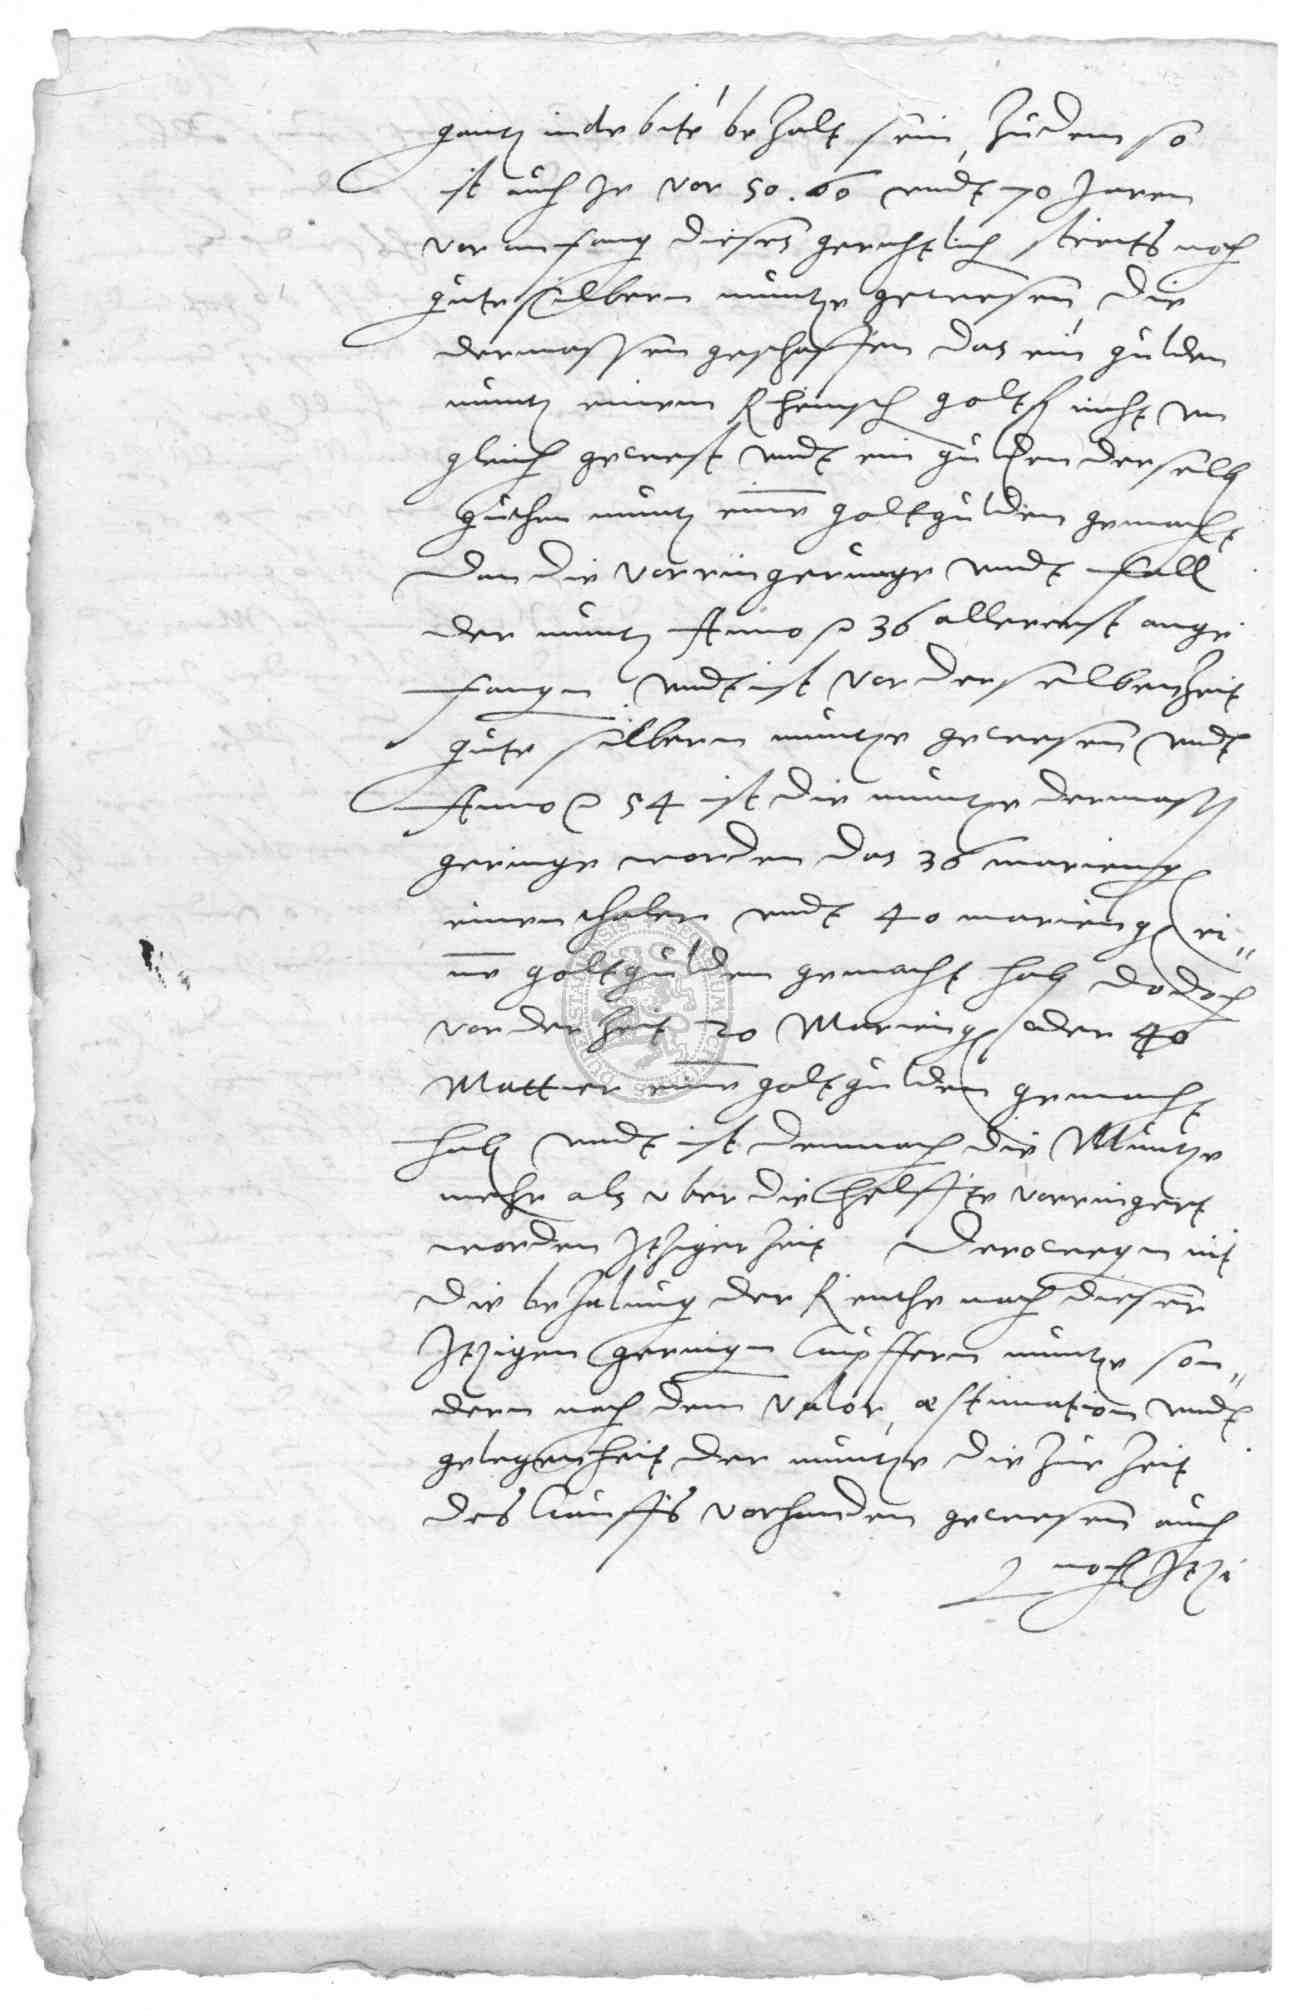 gantz indebite bezalt sein, Zudem so
ist auch Je vor 50. 60 undt 70 Jaren
vor anfang dieses gerichtlich streits noch
gute silbern muntze gewesen, die
dermassen geschaffen das ein gulden
muntz einem Rheinisch golt fl nicht un
gleich gewest undt ein gulden derselb
guthen muntz eine goltgulden gemacht
dan die vorringerunge undt fall
der muntz Anno 36 allererst ange
fangen undt ist vor derselben Zeit
gute silbern muntze gewesen undt
Anno 54 ist die muntze dermass
geringe worden das 36 marieng
einen thaler undt 40 marieng ei"
ne goltgulden gemacht hab dodoch
vor der Zeit 20 Marieng oder 40
Mattier eine goltgulden gemacht
hab undt ist demnach die Muntze
mehr als uber die helffte vorringert
worden Itziger Zeit Derowegen nit
die bezalung der Renthe nach dieser
Itzigen geringen Cupffern muntze son"
dern nach dem Valor, æstimation undt
gelegenheit der muntze die zur Zeit
des Kauffs vorhanden gewesen auch
noch Itzi